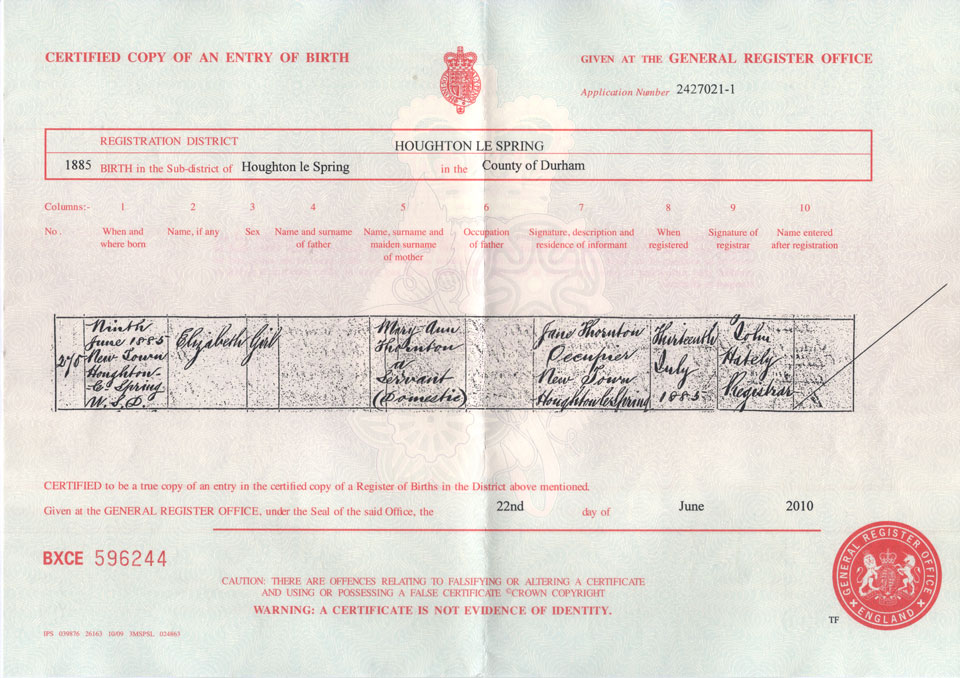 CERTIFIED COPY OF AN ENTRY OF BIRTH
GIVEN AT THE GENERAL REGISTER OFFICE
Application Number 2427021-1
REGISTRATION DISTRICT HOUGHTON LE SPRING
1885 BIRTH in the Sub-district of Houghton le Spring in the County of Durham
Columns:- 1 2 3 4 5 6 7 8 9 10
No. When and where born
Name, if any
Sex
Name and surname of father
Name, surname and maiden surname of mother
Occupation of father
Signature, description and residence of informant
When registered
Signature of registrar
Name entered after registration
Ninth
June 1885
New Town
Houghton-
Le Spring
U.S.D.
Elizabeth
Girl
Mary Ann
Thornton
a
Servant
(Domestic)
Jane Thornton
Occupier
New Town
Houghton le Spring
Thirteenth
July
1885
John
Hately
Registrar
CERTIFIED to be a true copy of an entry in the certified copy of a Register of Births in the District above mentioned.
Given at the GENERAL REGISTER OFFICE, under the Seal of the said Office, the 22nd day of June 2010
BXCE 596244
CAUTION: THERE ARE OFFENCES RELATING TO FALSIFYING OR ALTERING A CERTIFICATE
AND USING OR POSSESSING A FALSE CERTIFICATE ©CROWN COPYRIGHT
WARNING: A CERTIFICATE IS NOT EVIDENCE OF IDENTITY.
GENERAL REGISTER OFFICE
ENGLAND
TF
IPS 039876 26163 10/09 3MSPSL 024863